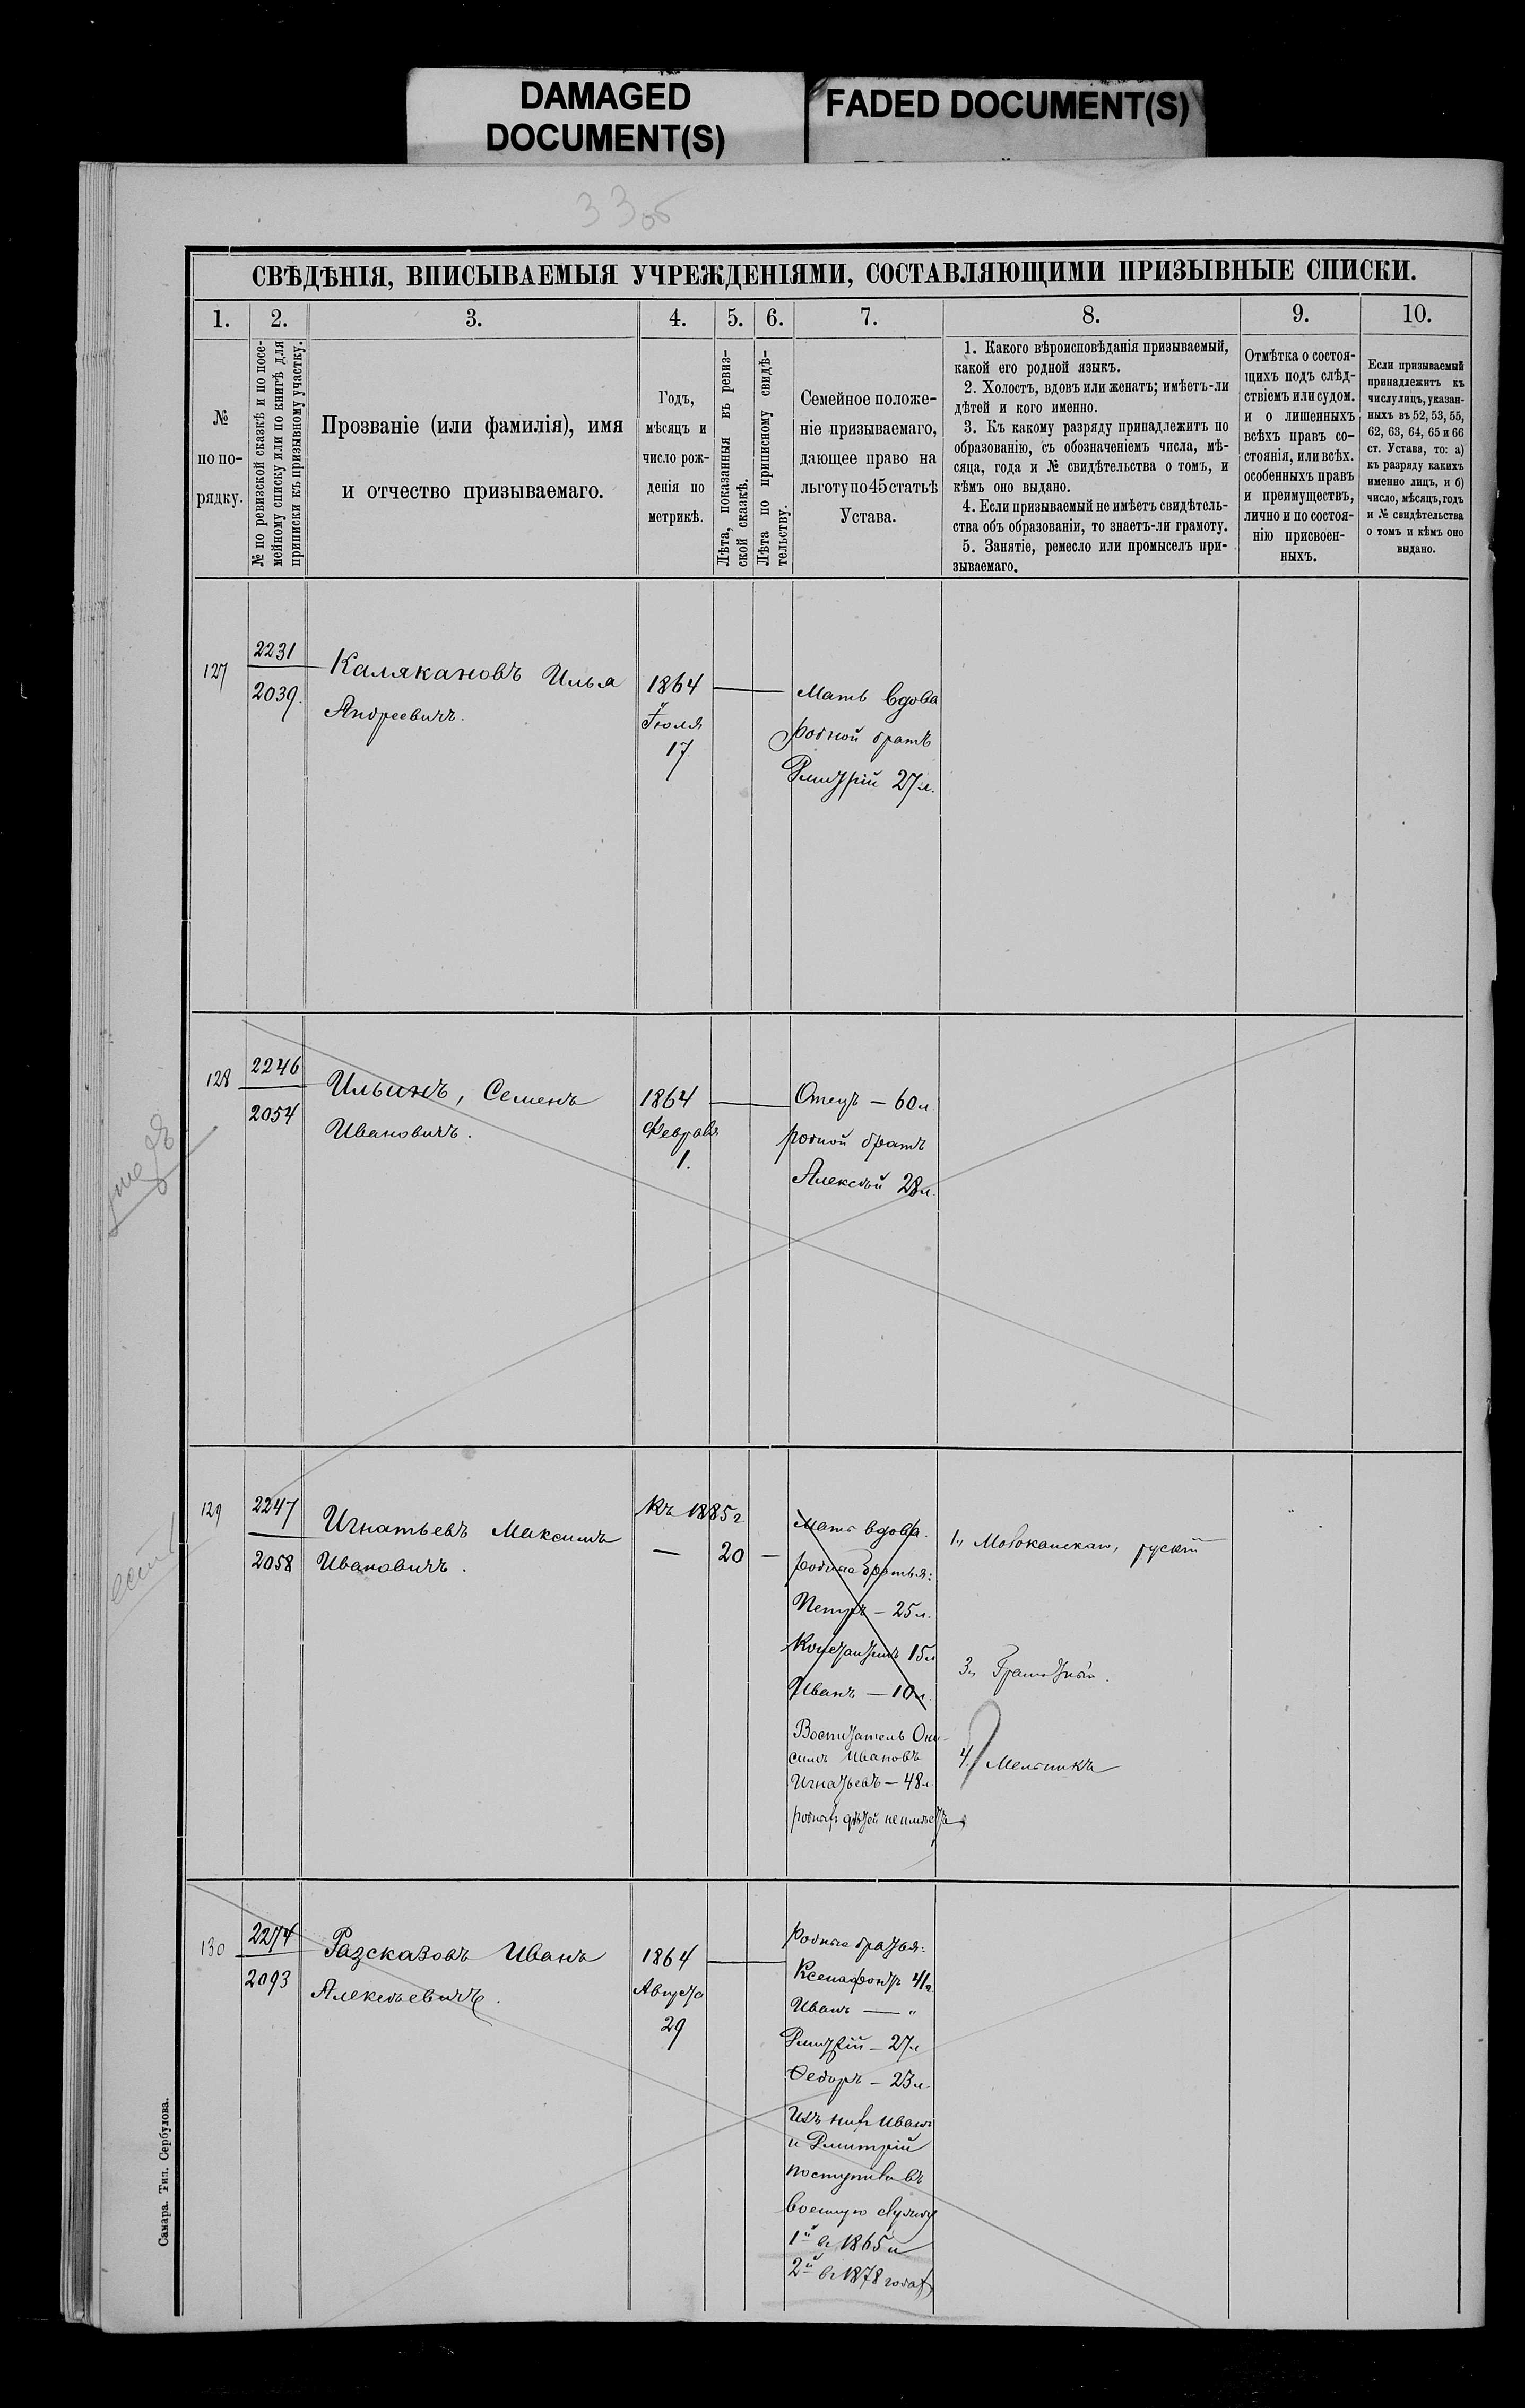 DAMAGED
DOCUMENT(S)
FADED DOCUMENT(S)
33об
СВѢДѢНІЯ, ВПИСЫВАЕМЫЯ УЧРЕЖДЕНІЯМИ, СОСТАВЛЯЮЩИМИ ПРИЗЫВНЫЕ СПИСКИ.
1.
2.
3.
4.
5.
6.
7.
8.
9.
10.
№
по по-
рядку.
№ по ревизской сказкѣ и по посе-
мейному списку или по книгѣ для
приписки къ призывному участку.
Прозваніе (или фамилія), имя
и отчество призываемаго.
Годъ,
мѣсяцъ и
число рож-
денія по
метрикѣ.
Лѣта, показанныя въ ревиз-
ской сказкѣ.
Лѣта по приписному свидѣ-
тельству.
Семейное положе-
ніе призываемаго,
дающее право на
льготу по 45 статьѣ
Устава.
1. Какого вѣроисповѣданія призываемый,
какой его родной языкъ.
2. Холостъ, вдовъ или женатъ; имѣетъ-ли
дѣтей и кого именно.
3. Къ какому разряду принадлежитъ по
образованію, съ обозначеніемъ числа, мѣ-
сяца, года и № свидѣтельства о томъ, и
кѣмъ оно выдано.
4. Если призываемый не имѣетъ свидѣтель-
ства объ образованіи, то знаетъ-ли грамоту.
5. Занятіе, ремесло или промыселъ при-
зываемаго.
Отмѣтка о состоя-
щихъ подъ слѣд-
ствіемъ или судом.
и о лишенныхъ
всѣхъ правъ со-
стоянія, или всѣх.
особенныхъ правъ
и преимуществъ,
лично и по состоя-
нію присвоен-
ныхъ.
Если призываемый
принадлежитъ къ
числу лицъ, указан-
ныхъ въ 52, 53, 55,
62, 63, 64, 65 и 66
ст. Устава, то: а)
къ разряду какихъ
именно лицъ, и б)
число, мѣсяцъ, годъ
и № свидѣтельства
о томъ и кѣмъ оно
выдано.
127
2231
2039.
Каляканова Илья
Андреевичъ.
1864
Іюля
17
Мать вдова
родной братъ
Дмитрій 27 л.
128
2246
2054
Ильинъ, Семенъ
Ивановичъ.
1864
Февраля
1.
Отецъ — 60 л
родной братъ
Алексѣй 28 л.
129
2247
2058
Игнатьевъ Максимъ
Ивановичъ.
Къ 1885 г
— 20 —
Мать вдова.
родные братья:
Петръ — 25 л.
Константинъ 15 л
Иванъ — 10 л.
Воспитатель Они-
симъ Ивановъ
Игнатьевъ — 48 л.
родныхъ дѣтей не имѣетъ
1., Молоканская, рускій
3., Грамотный.
4., Мельникъ
есть
130
2274
2093
Разсказовъ Иванъ
Алексѣевичъ.
1864
Августа
29
Родные братья:
Ксенафонтъ 41 л.
Иванъ — "
Дмитрій — 27 л
Федоръ — 23 л.
Изъ нихъ Иванъ
и Дмитрій
поступили въ
военную службу
1й въ 1865 и
2й въ 1878 годах
Самара. Тип. Сербулова.